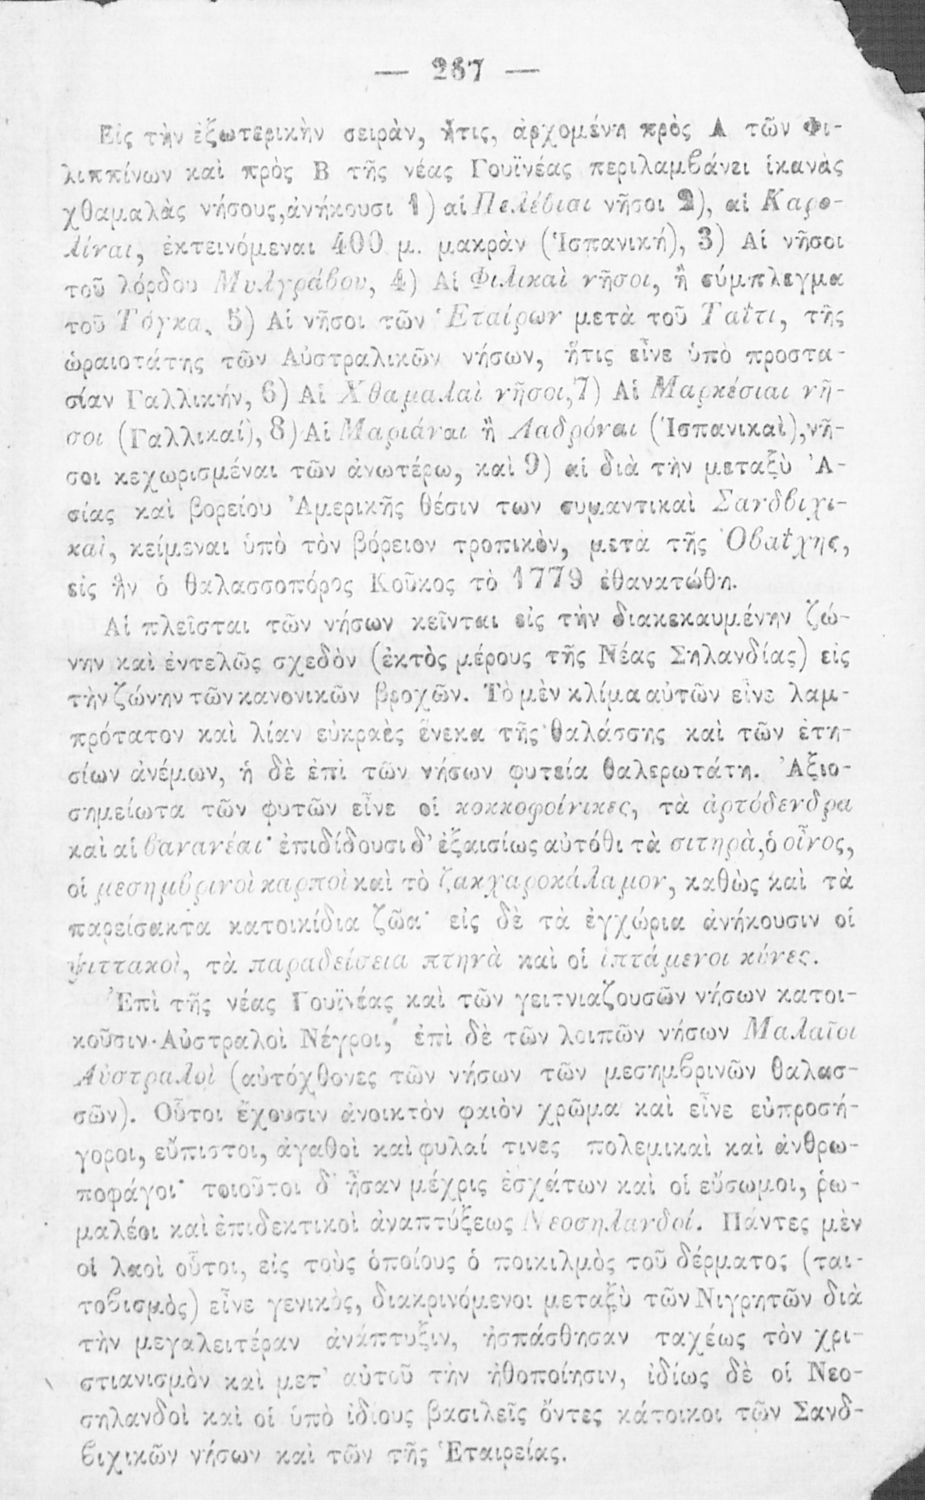 — 267 —
Εἰς τὴν ἐξωτερικὴν σειρὰν, ἥτις, ἀρχομένη πρὸς Α τῶν Φι-
λιππίνων καὶ πρὸς Β τῆς νέας Γουϊνέας περιλαμβάνει ἱκανὰς
χθαμαλὰς νήσους,ἀνήκουσι 1) αἱ Πελέβιαι νῆσοι 2), αἱ Καρο-
λίναι, ἐκτεινόμεναι 400 μ. μακρὰν (Ἱσπανική), 3) Αἱ νῆσοι
τοῦ λόρδου Μυλγράβου, 4) Αἱ Φιλικαὶ νῆσοι, ἢ σύμπλεγμα
τοῦ Τόγκα, 5) Αἱ νῆσοι τῶν Ἑταίρων μετὰ τοῦ Ταΐτι, τῆς
ὡραιοτάτης τῶν Αὐστραλικῶν νήσων, ἥτις εἶνε ὑπὸ προστα-
σίαν Γαλλικήν, 6) Αἱ Χθαμαλαὶ νῆσοι,7) Αἱ Μαρκέσιαι νῆ-
σοι (Γαλλικαί), 8) Αἱ Μαριάναι ἢ Λαδρόναι (Ἱσπανικαὶ),νῆ-
σοι κεχωρισμέναι τῶν ἀνωτέρω, καὶ 9) αἱ διὰ τὴν μεταξὺ Ἀ-
σίας καὶ βορείου Ἀμερικῆς θέσιν των σημαντικαὶ Σανδβιχι-
καὶ, κείμεναι ὑπὸ τὸν βόρειον τροπικὸν, μετὰ τῆς Ὀβαΐχης,
εἰς ἣν ὁ θαλασσοπόρος Κοῦκος τὸ 1779 ἐθανατώθη.
Αἱ πλεῖσται τῶν νήσων κεῖνται εἰς τὴν διακεκαυμένην ζώ-
νην καὶ ἐντελῶς σχεδὸν (ἐκτὸς μέρους τῆς Νέας Σηλανδίας) εἰς
τὴν ζώνην τῶν κανονικῶν βροχῶν. Τὸ μὲν κλίμα αὐτῶν εἶνε λαμ-
πρότατον καὶ λίαν εὐκραὲς ἕνεκα τῆς θαλάσσης καὶ τῶν ἐτη-
σίων ἀνέμων, ἡ δὲ ἐπὶ τῶν νήσων φυτεία θαλερωτάτη. Ἀξιο-
σημείωτα τῶν φυτῶν εἶνε οἱ κοκκοφοίνικες, τὰ ἀρτόδενδρα
καὶ αἱ βανανέαι· ἐπιδίδουσι δ' ἐξαισίως αὐτόθι τὰ σιτηρὰ,ὁ οἶνος,
οἱ μεσημβρινοὶ καρποὶ καὶ τὸ ζακχαροκάλαμον, καθὼς καὶ τὰ
παρείσακτα κατοικίδια ζῶα· εἰς δὲ τὰ ἐγχώρια ἀνήκουσιν οἱ
ψιττακοὶ, τὰ παραδείσεια πτηνὰ καὶ οἱ ἱπτάμενοι κύνες.
Ἐπὶ τῆς νέας Γουϊνέας καὶ τῶν γειτνιαζουσῶν νήσων κατοι-
κοῦσιν Αὐστραλοὶ Νέγροι, ἐπὶ δὲ τῶν λοιπῶν νήσων Μαλαῖοι
Αὐστραλοὶ (αὐτόχθονες τῶν νήσων τῶν μεσημβρινῶν θαλασ-
σῶν). Οὗτοι ἔχουσιν ἀνοικτὸν φαιὸν χρῶμα καὶ εἶνε εὐπροσή-
γοροι, εὔπιστοι, ἀγαθοὶ καὶ φυλαί τινες πολεμικαὶ καὶ ἀνθρω-
ποφάγοι· τοιοῦτοι δ' ἦσαν μέχρις ἐσχάτων καὶ οἱ εὔσωμοι, ῥω-
μαλέοι καὶ ἐπιδεκτικοὶ ἀναπτύξεως Νεοσηλανδοί. Πάντες μὲν
οἱ λαοὶ οὗτοι, εἰς τοὺς ὁποίους ὁ ποικιλμὸς τοῦ δέρματος (ται-
τοβισμὸς) εἶνε γενικὸς, διακρινόμενοι μεταξὺ τῶν Νιγρητῶν διὰ
τὴν μεγαλειτέραν ἀνάπτυξιν, ἠσπάσθησαν ταχέως τὸν χρι-
στιανισμὸν καὶ μετ' αὐτοῦ τὴν ἠθοποίησιν, ἰδίως δὲ οἱ Νεο-
σηλανδοὶ καὶ οἱ ὑπὸ ἰδίους βασιλεῖς ὄντες κάτοικοι τῶν Σανδ-
βιχικῶν νήσων καὶ τῶν τῆς Ἑταιρείας.